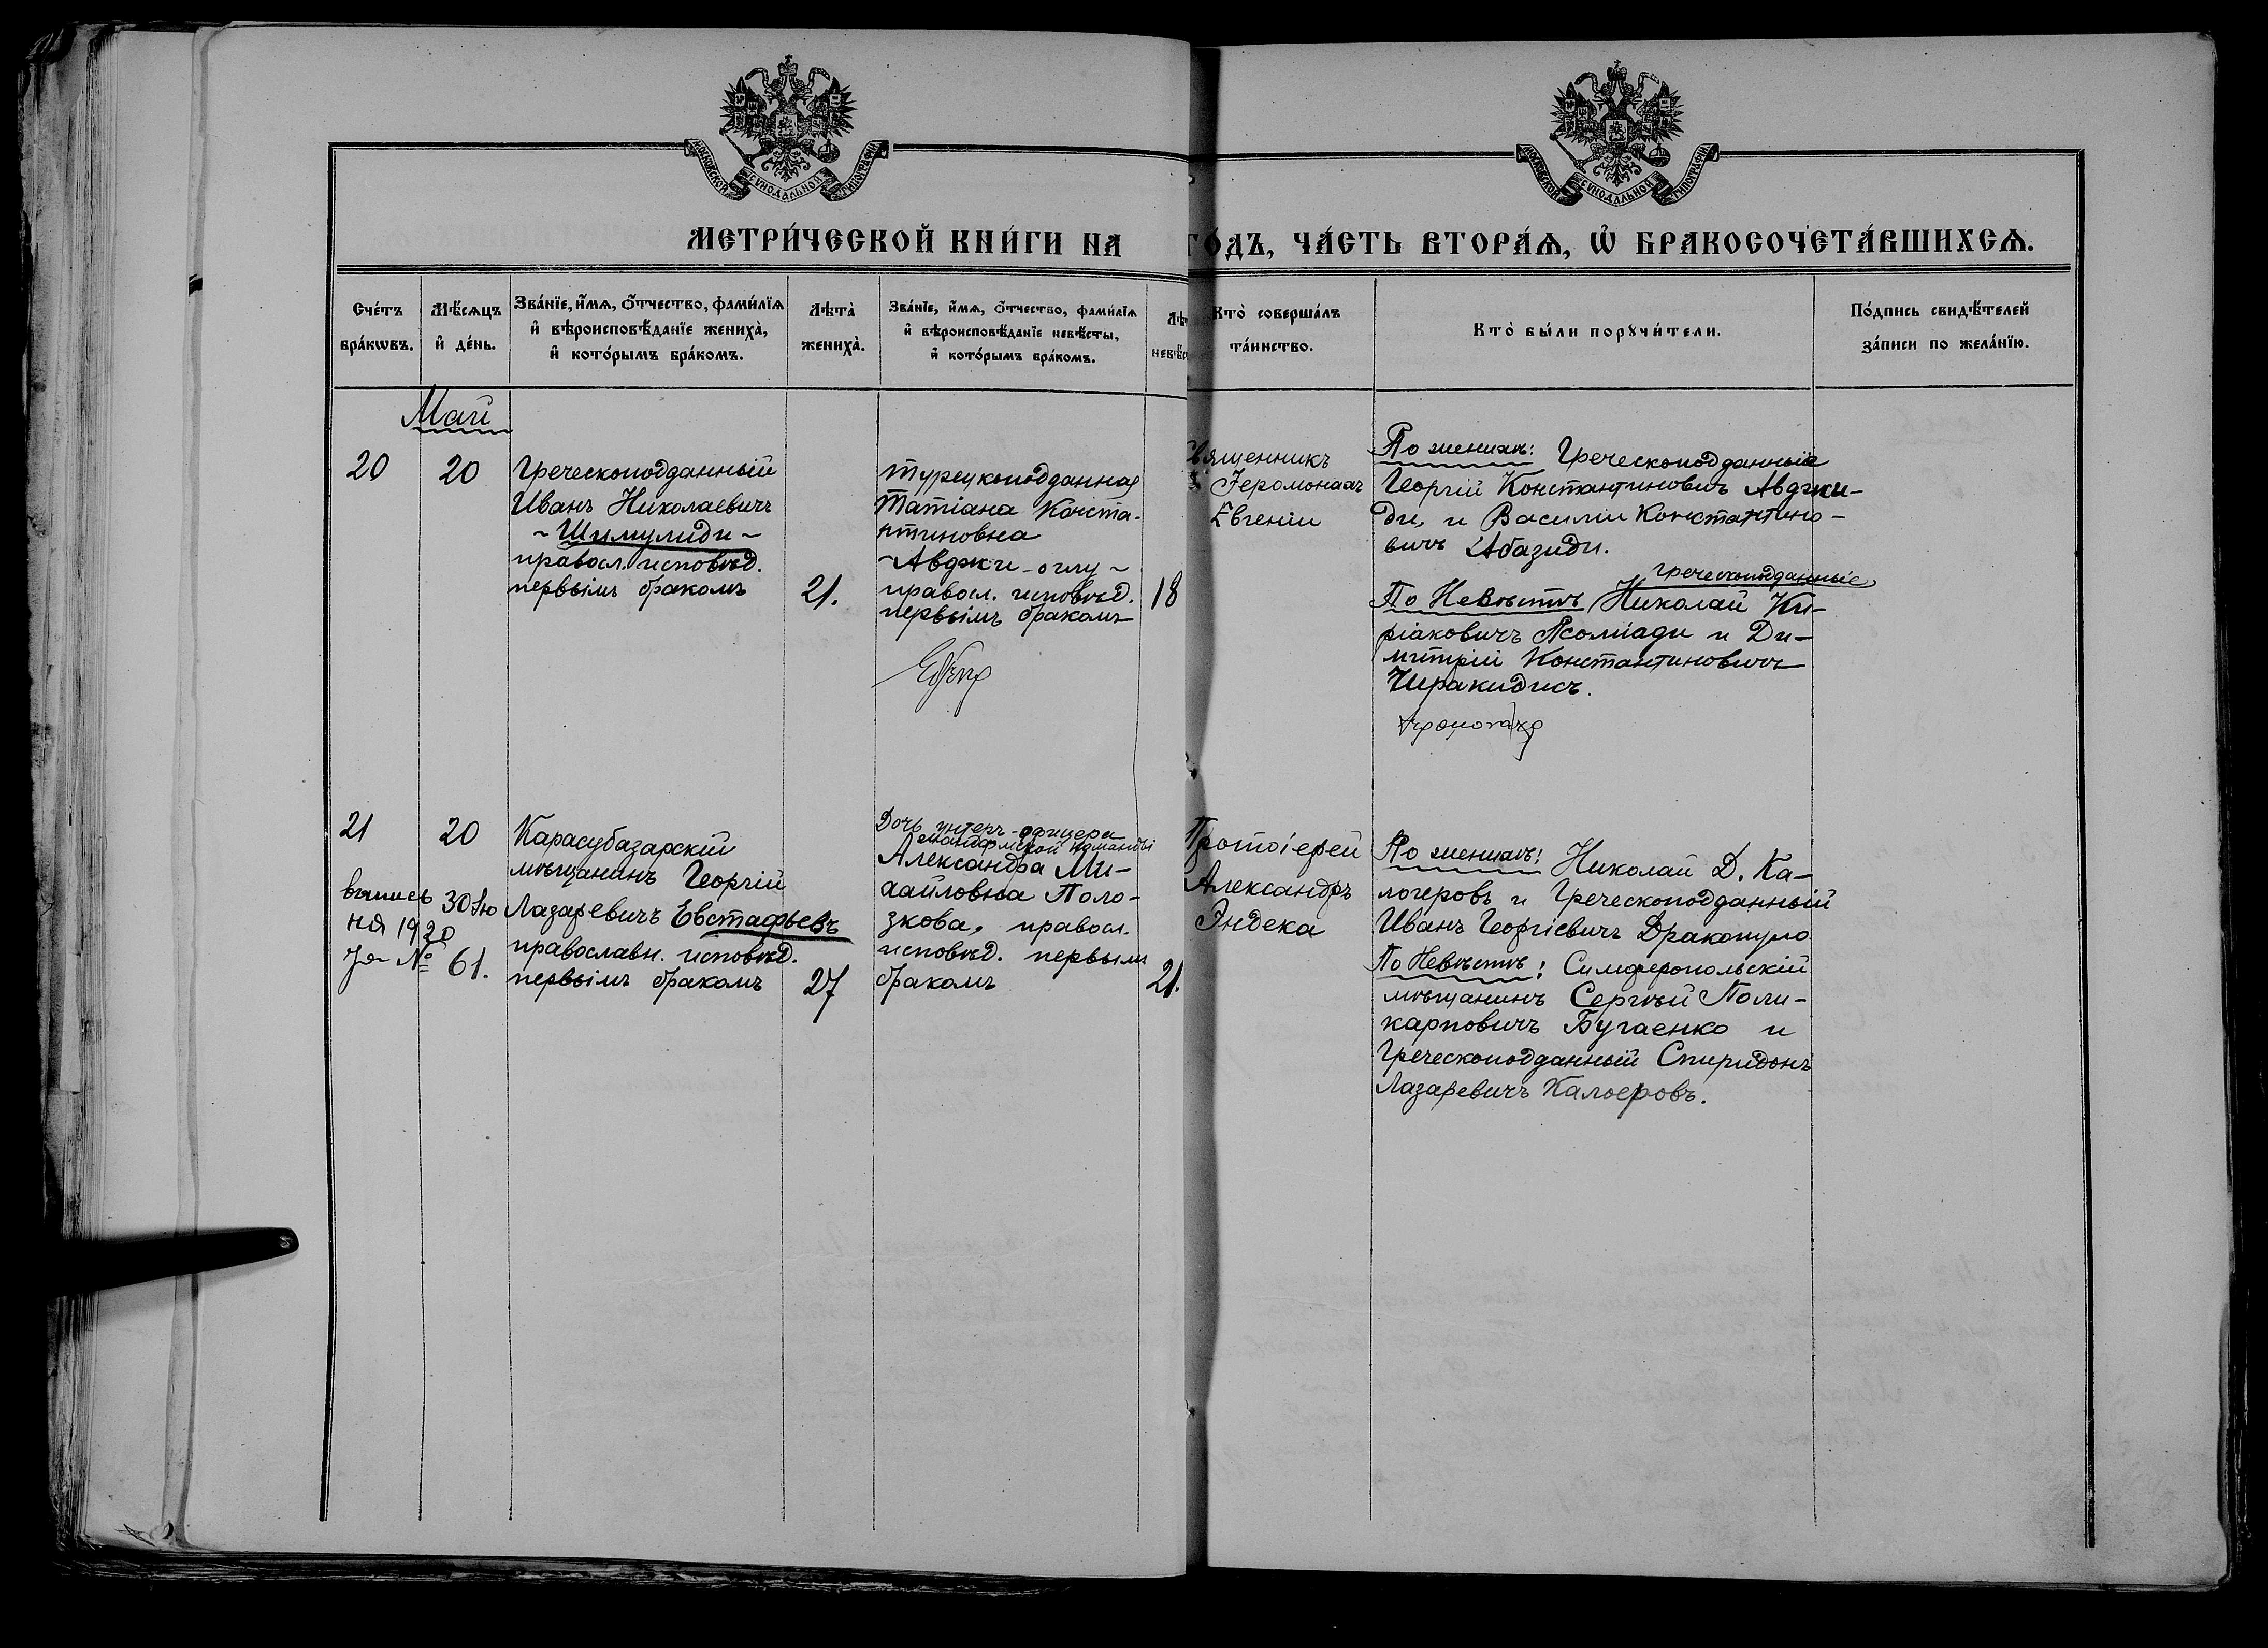 МОСКОВСКОЙ СѴНОДАЛЬНОЙ ТИПОГРАФІИ
МОСКОВСКОЙ СѴНОДАЛЬНОЙ ТИПОГРАФІИ
МЕТРИ́ЧЕСКОЙ КНИ́ГИ НА ГО́ДЪ, ЧА́СТЬ ВТОРА́Ѧ, Ѡ҆ БРАКОСОЧЕТА́ВШИХСѦ.
Сче́тъ
бра́кѡвъ.
Мѣ́сѧцъ
и҆ де́нь.
Зва́нїе, и҆́мѧ, ѻ҆́тчество, фами́лїѧ
и҆ вѣроисповѣ́данїе жениха̀,
и҆ кото́рымъ бра́комъ.
Лѣта̀
жениха̀.
Зва́нїе, и҆́мѧ, ѻ҆́тчество, фами́лїѧ
и҆ вѣроисповѣ́данїе невѣ́сты,
и҆ кото́рымъ бра́комъ.
Кто̀ соверша́лъ
та́инство.
Кто̀ бы́ли порꙋчи́тели.
По́дпись свидѣ́телей
за́писи по жела́нїю.
Май
20
20
Греческоподданный
Иванъ Николаевичъ
~ Шимулиди ~
правосл. исповѣд.
первымъ бракомъ
21.
Турецкоподданная
Татіана Конста-
нтиновна
~ Авджи-оглу ~
правосл. исповѣд.
первымъ бракомъ
18
Священникъ
Іеромонахъ
Евгеніи
По женихѣ: Греческоподданные
Георгій Константиновичъ Авджи-
ди, и Василіи Константино-
вичъ Абазиди.
греческоподданные
По Невѣстѣ Николай Ки-
ріаковичъ Псоміади и Ди-
митрій Константиновичъ
Чиракидисъ.
21
20
выпись 30 Iю
ня 1920
за № 61.
Карасубазарскій
мѣщанинъ Георгій
Лазаревичъ Евстафьевъ
православн. исповѣд.
первымъ бракомъ
27
Дочь унтеръ-офицера
жандармской команды
Александра Ми-
хайловна Поло-
зкова, правосл.
исповѣд. первымъ
бракомъ
21.
Протоіерей
Александръ
Эндека
По женихѣ: Николай Д. Ка-
логеровъ и Греческоподданный
Иванъ Георгіевичъ Дракопуло
По Невѣстѣ: Симферопольскій
мѣщанинъ Сергѣй Поли-
карповичъ Бугаенко и
Греческоподданный Спиридонъ
Лазаревичъ Калоеровъ.